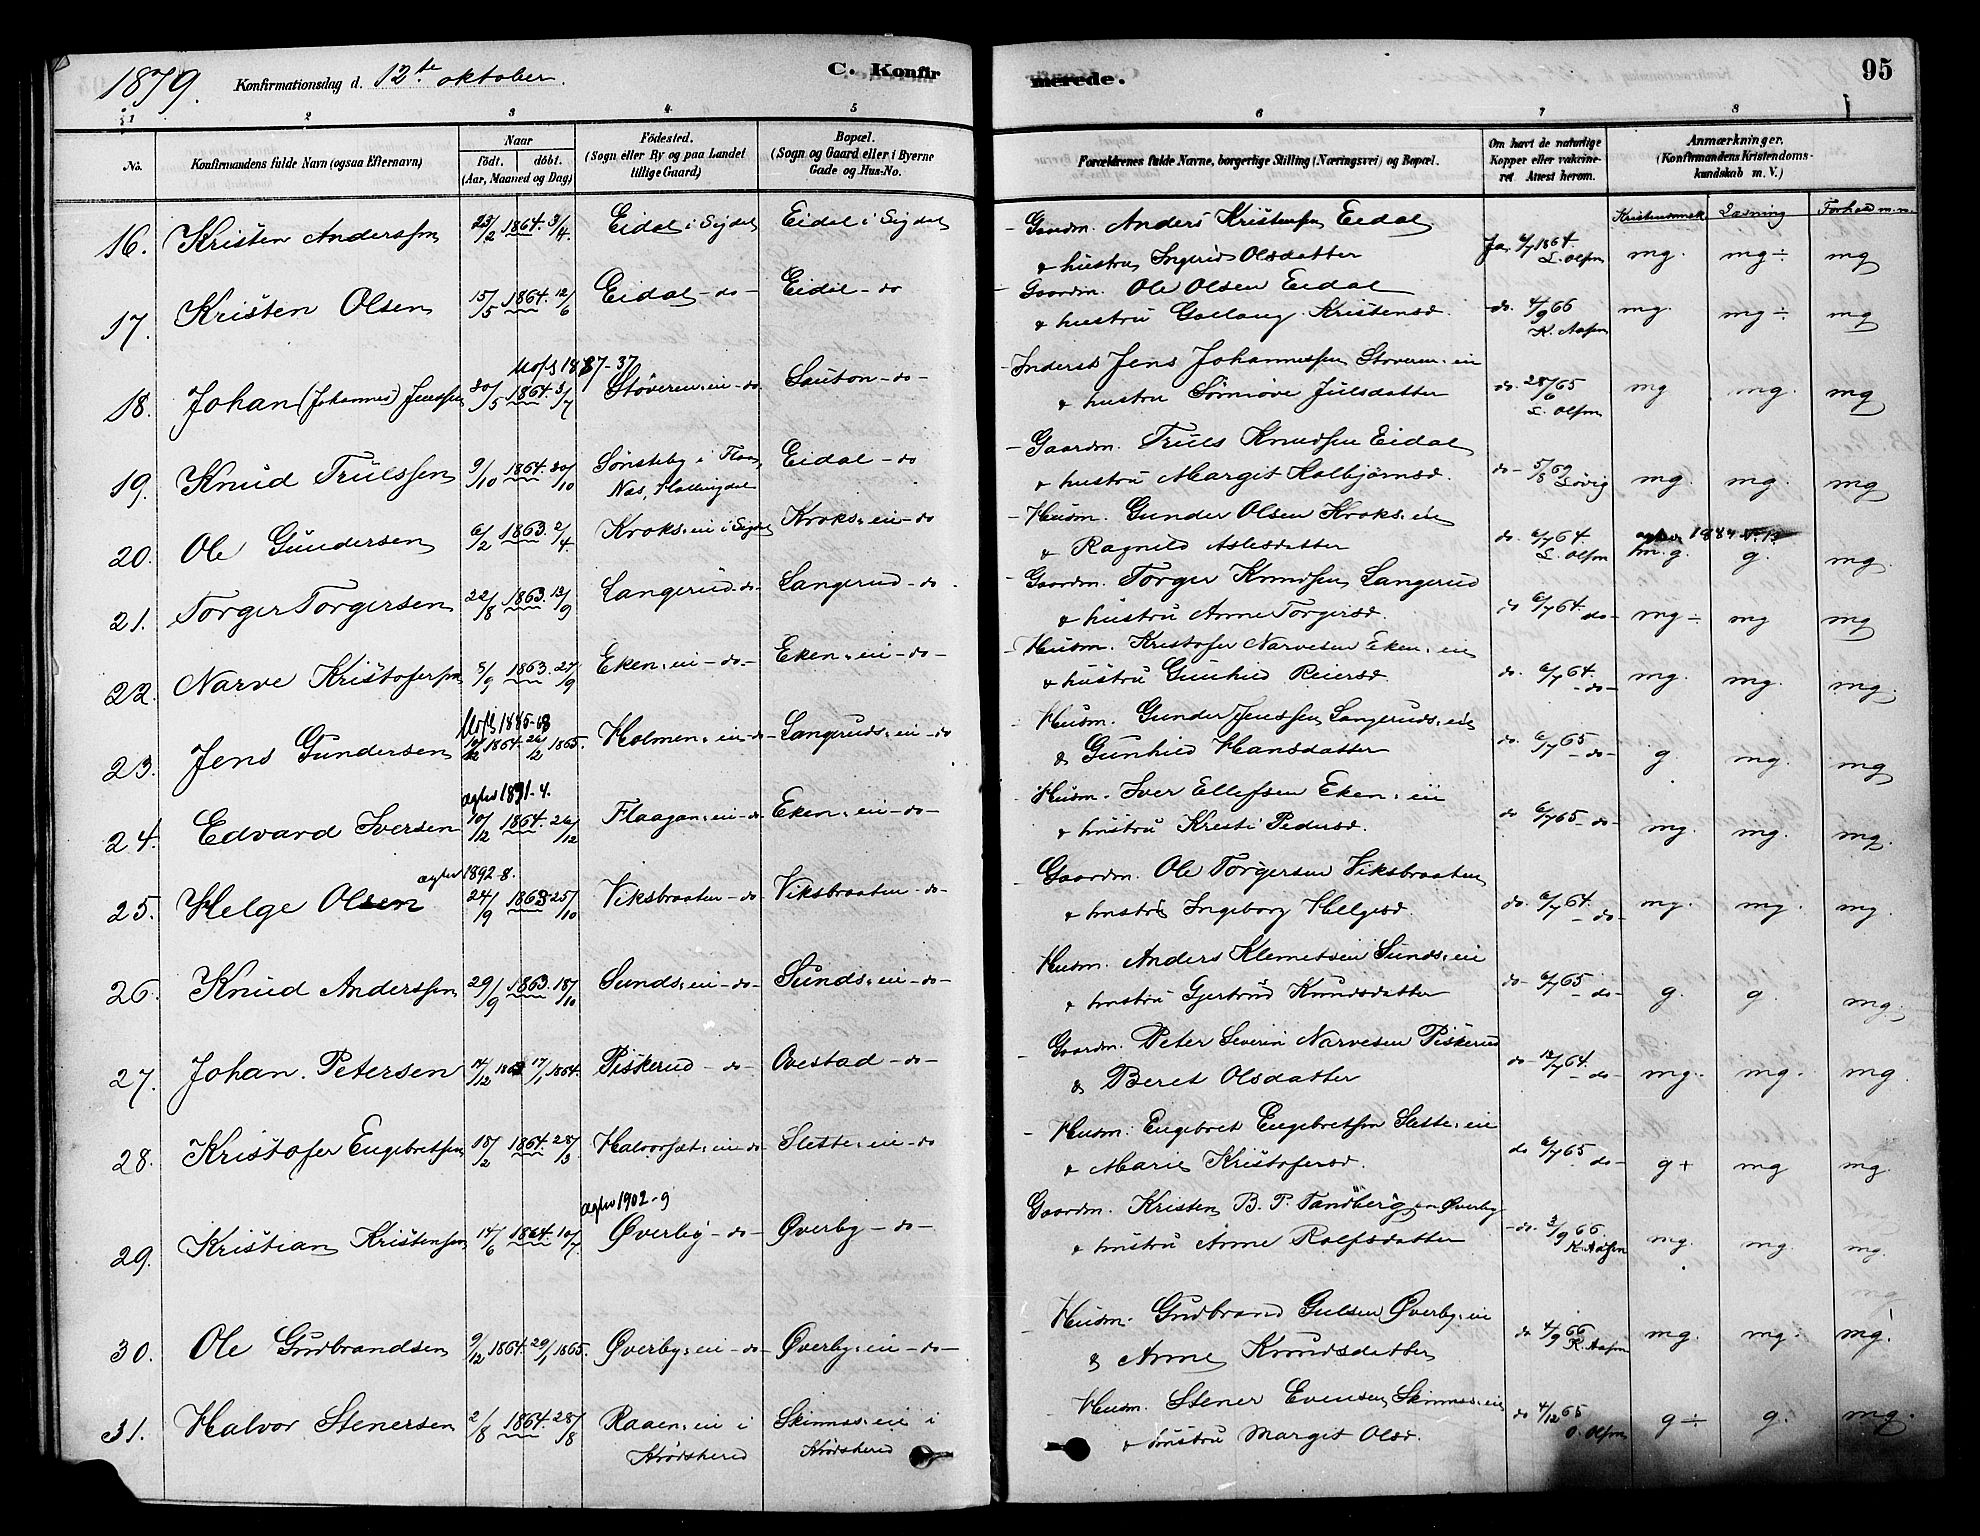 1879. Konfirmationsdag d. 12.te oktober. C. Konfir
merede. 95
1 2 3 4 5
6 7 8
No. Konfirmandens fulde Navn (ogsaa Efternavn) Naar født. døbt. (Aar, Maaned og Dag) Fødested. (Sogn eller By og paa Landet tillige Gaard) Bopæl. (Sogn og Gaard eller i Byerne Gade og Hus-No.
Forældrenes fulde Navne, borgerlige Stilling (Næringsvei) og Bopæl. Om havt de naturlige Kopper eller vakcineret Attest herom. Anmærkninger. (Konfirmandens Kristendomskundskab m. V.)
Læsning Forhold m.m.
16. Kristen Anderssen 23/2 1864. 3/4. Eidal i Sigdal Eidal i Sigdal
- Gaardm. Anders Kristensen Eidal Ja. 6/7 1864. L. Olsen mg. mg÷ mg
& hustru Ingerid Olsdatter
17. Kristen Olsen 15/5 1864. 12/6 Eidal - do - Eidal - do
- Gaardm. Ole Olsen Eidal do. 4/9 66 K. Aasen mg. mg÷ mg
& hustru Gollaug Kristensd.
18. Johan (Johannes) Jenssen 30/5 1864. 3/7 Støveren:ei - do Sauton - do -
- Inderst Jens Johannessen Støveren:ei do 28/6 65 L. Olsen mg mg. mg
& hustru Sønnøve Julsdatter
19. Knud Trulssen 9/10 1864. 30/10 Sønsteby i Flaa, Nes, Hallingdal Eidal - do
- Gaardm. Truls Knudsen Eidal do - 5/8 69 Løvig mg. mg. mg
& hustru Margit Kolbjørnsd.
20. Ole Gundersen 6/2 1863. 2/4. Kroks:ei i Sigdal Kroks:ei - do
- Husm. Gunder Olsen Kroks:ei do. 6/7 64. L. Olsen m.g. g. mg.
& Ragnild Aslesdatter
21. Torger Torgersen 22/8 1863. 13/9 Langerud - do - Langerud - do
- Gaardm. Torger Knudsen Langerud do 6/7 64. do - mg÷ mg mg
& hustru Anne Torgersd.
22. Narve Kristofersen 5/9 1863. 27/9 Eken:ei - do - Eken:ei - do -
- Husm. Kristofer Narvesen Eken:ei do. 6/7 64. - do - mg. mg. mg.
& hustru Gunhild Reiersd.
23. Jens Gundersen 1864. 26/2 1865. Holmen:ei - do - Langeruds:ei - do
- Husm. Gunder Jenssen Langeruds:ei do. 6/7 65 - do - g. mg. mg
& Gunhild Hansdatter
agtev 1891-4.
24. Edvard Iversen 10/12 1864. 26/12 Flaagan:ei - do Eken:ei - do -
- Husm. Iver Ellefsen Eken:ei do 6/7 65 - do - mg. mg. mg.
& hustru Kresti Pedersd.
agtev 1892-8.
25. Helge Olsen 24/9 1863 25/10 Viksbraaten - do Viksbraaten - do -
- Gaardm. Ole Torgersen Viksbraaten do. 6/7 64. - do - mg. mg. mg.
& hustru Ingeborg Helgesd.
26. Knud Anderssen 29/9 1863. 18/10 Sunds:ei - do - Sunds:ei - do -
- Husm. Anders Klemetsen Sunds:ei do - 6/7 65 - do - g. g. mg.
& hustru Gjertrud Knudsdatter
27. Johan. Petersen 14/12 1863 17/1 1864. Piskerud - do - Ovestad - do -
- Gaardm. Peter Severin Narvesen Piskerud do 12/7 64. - do - mg. mg. mg.
& Beret Olsdatter
28. Kristofer Engebretsen 18/2 1864. 28/3 Halvorsæt:ei - do - Slette:ei - do
- Husm. Engebret Engebretsen Slette:ei do 6/7 65 do - g + mg mg.
& Marie Kristofersd.
agtev 1902-9
29. Kristian Kristensen 14/6 1864. 10/7 Øverby - do - Øverby - do -
Gaardm. Kristen B. P. Tandberg Øverby - do. 3/9 66. K. Aasen mg. mg. mg.
& hustru Anne Rolfsdatter
30. Ole Gudbrandsen 9/12 1864. 29/1 1865. Øverby:ei - do - Øverby:ei - do -
- Husm. Gudbrand Gulsen Øverby:ei do 4/9 66 K. Aasen mg. mg. mg.
& Anne Knudsdatter
31. Halvor Stenersen 2/8 1864. 28/8 Raaen:ei i Krødsherred Skinnes:ei i Krødsherred
Husm. Stener Evensen Skinnes:ei do 4/12 65 O. Olsen g÷ g. mg.
& hustru Margit Olsd.